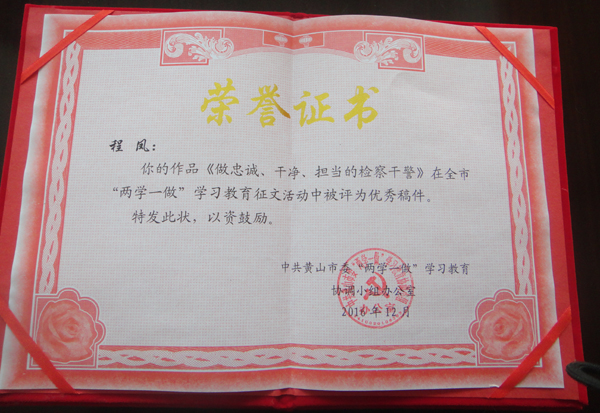 荣誉证书
程 凤：
你的作品《做忠诚、干净、担当的检察干警》在全市
“两学一做”学习教育征文活动中被评为优秀稿件。
特发此状，以资鼓励。
中共黄山市委“两学一做”学习教育
协调小组办公室
2016年12月
办公室